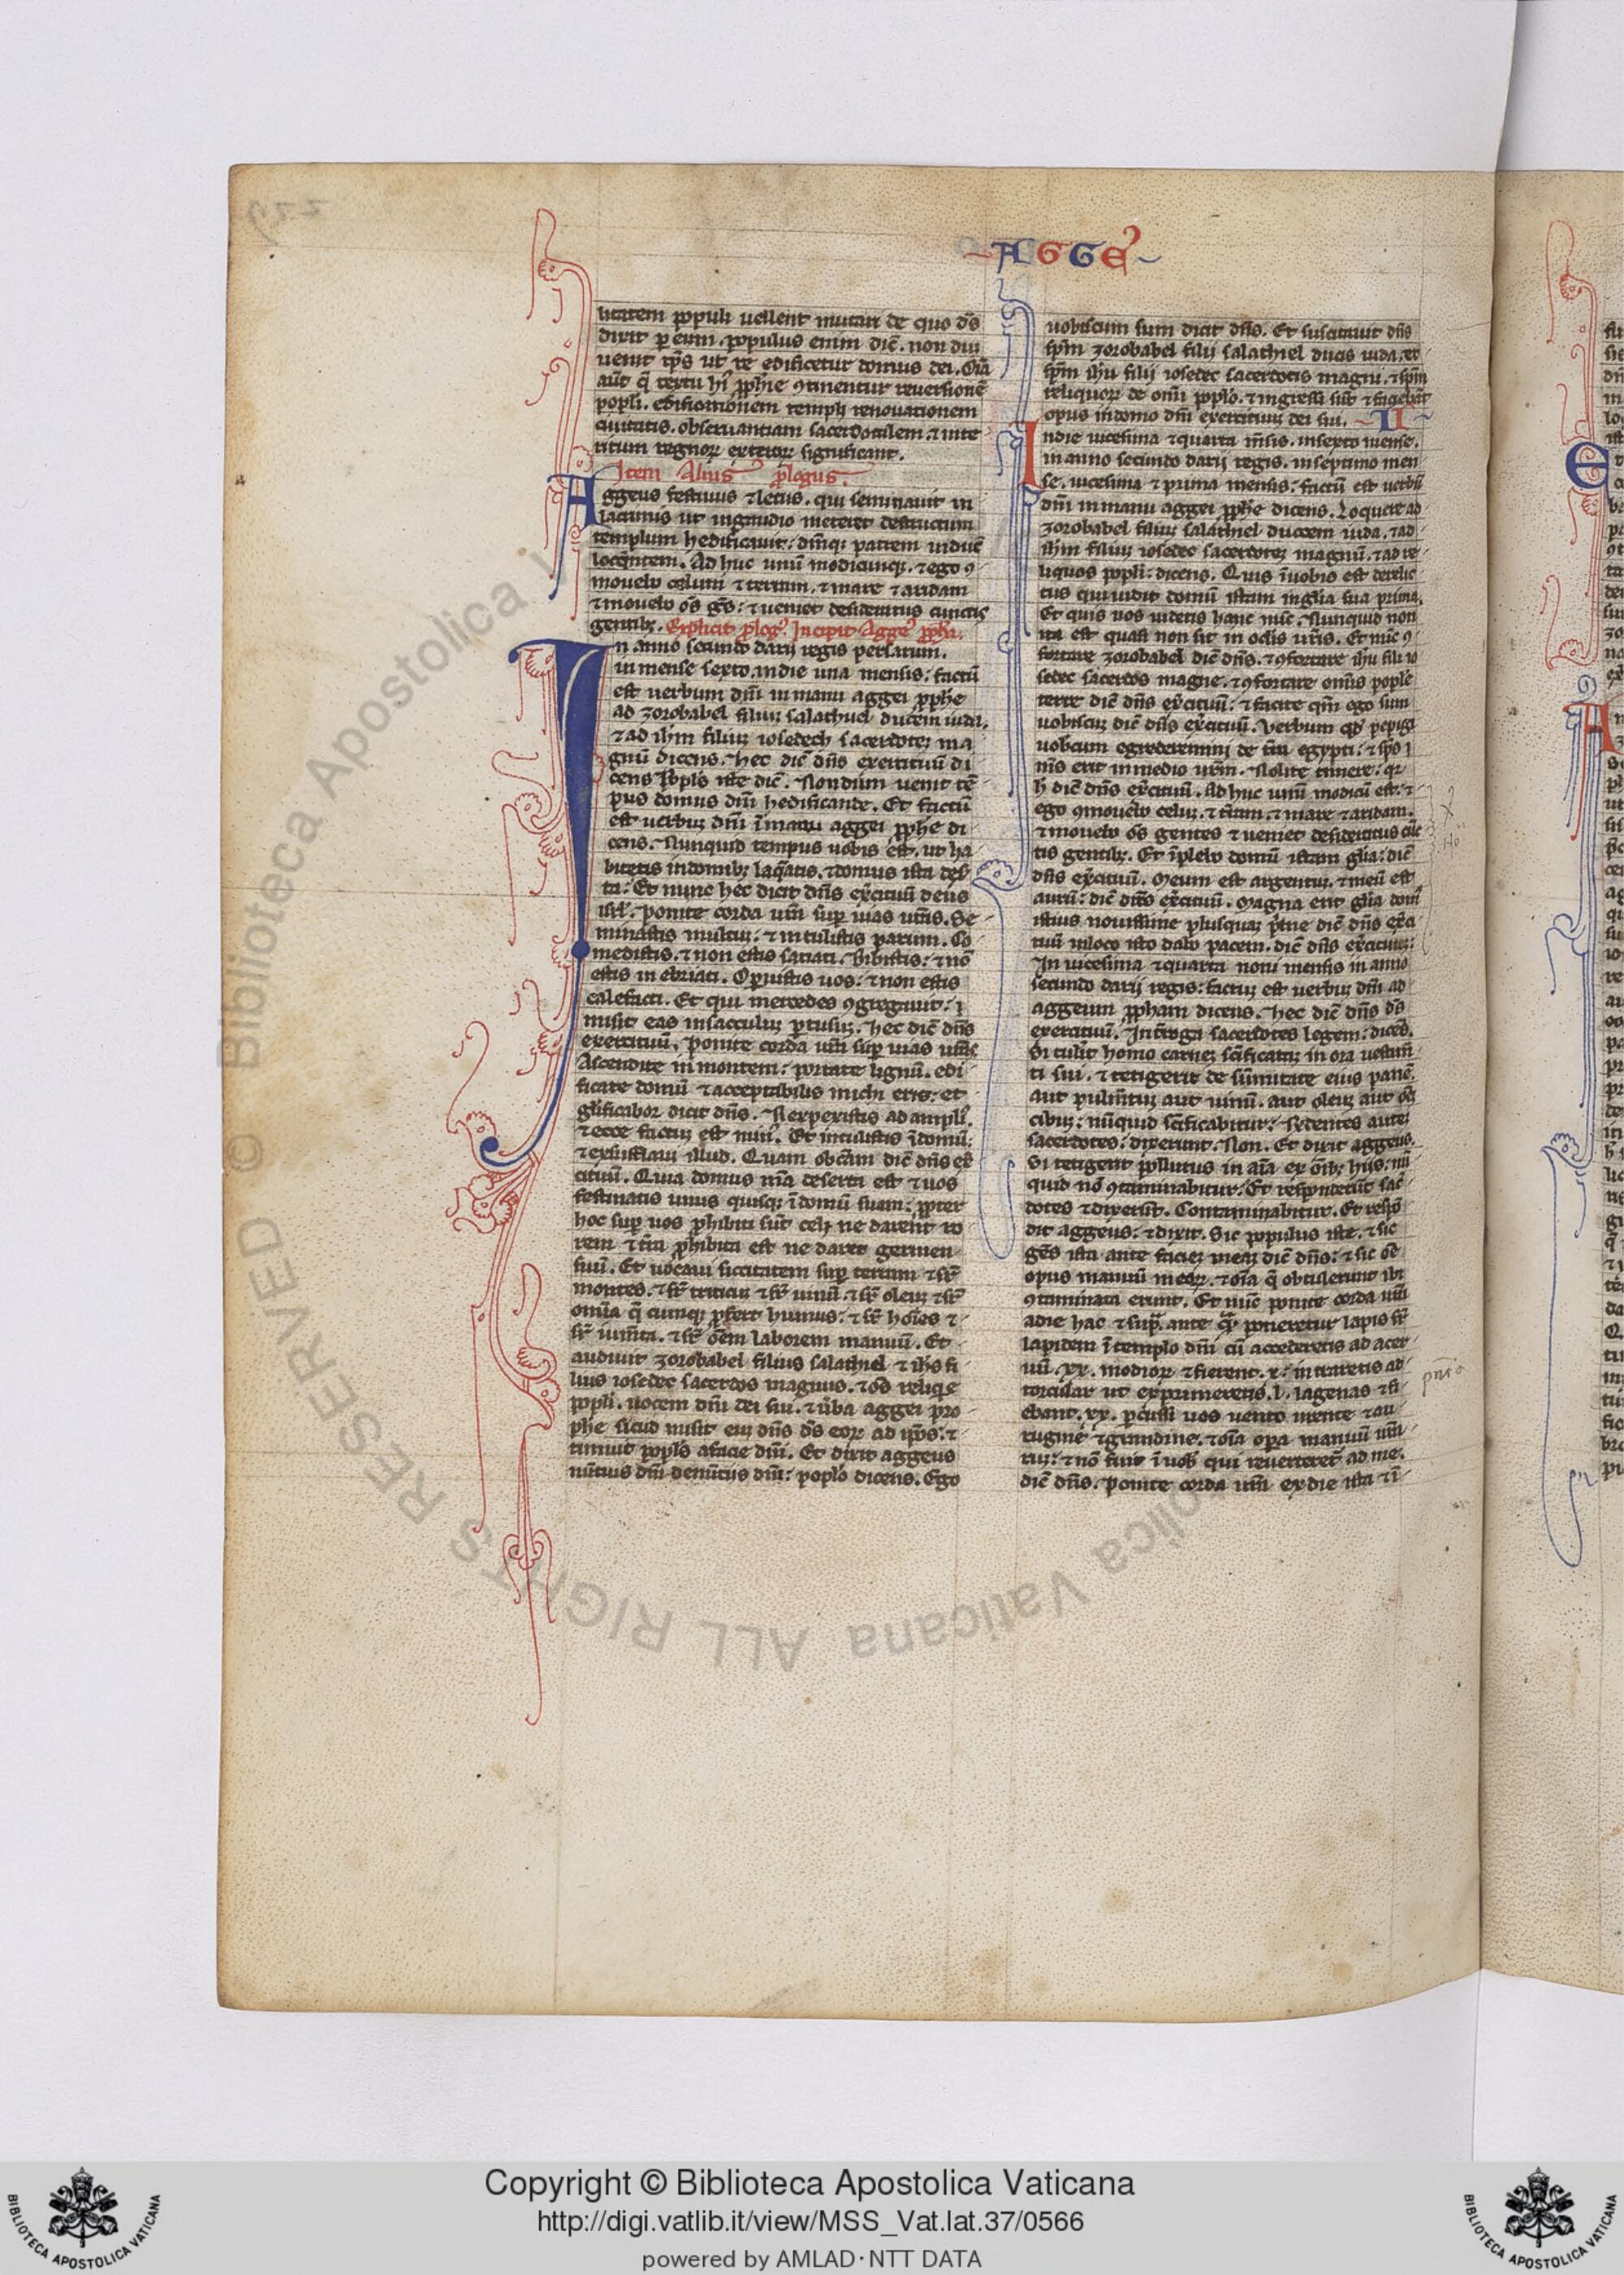 AGGEꝰ
litatem populi uellent mutari de quo dñs
dixit p eum. populus enim dic̄. non dū
uenit tp̄s ut re edificetur domus dei. Oīa
aūt q̄ textu hͥ ꝓph̄e ꝯtinentur reuersionē
popl̄i. edificationem templi renouationem
ciuitatis. obseruantiam sacerdotalem. ⁊ inte
ritum regnoꝝ exteroꝝ significant.
Item Alius ꝓlogus.
Aggeus festiuus ⁊ letus. qui seminauit in
lacrimis ut in gaudio meteret destructum
templum hedificauit. dm̄qꝫ patrem inducē
loquentem. Ad huc unū modicumqꝫ. ⁊ ego ꝯ
mouebo celum ⁊ terram. ⁊ mare ⁊ aridam
⁊ mouebo oēs gēs: ⁊ ueniet desideratus cunctis
gentibꝫ. Explicit ꝓlogꝰ. Incipit Aggeꝰ ꝓpha.
In anno secundo darij regis persarum.
in mense sexto. in die una mensis: factū
est uerbum dn̄i in manu aggei ꝓph̄e
ad zorobabel filiuꝫ salathiel ducem iuda.
⁊ ad ih̄m filiuꝫ iosedech sacerdoteꝫ ma
gnū dicens. hec dic̄ dn̄s exercituū di
cens. Popl̄s iste dic̄. Nondum uenit tē
pus domus dn̄i hedificande. Et factū
est uerbuꝫ dn̄i ī manu aggei ꝓph̄e di
cens. Nunquid tempus uobis est. ut ha
bitetis in domibꝫ laq̄atis. ⁊ domus ista des̄
ta: Et nunc hec dicit dn̄s ex̄cituū deus
isrl̄. ponite corda ur̄a suꝑ uias ur̄as. Se
minastis multuꝫ: ⁊ intulistis parum. Co
medistis. ⁊ non estis satiati. Bibistis: ⁊ nō
estis in ebriati. Opuistis uos: ⁊ non estis
calefacti. Et qui mercedes ꝯgregauit: ⁊
misit eas in sacculuꝫ ꝑtusuꝫ. hec dic̄ dn̄s
exercituū. ponite corda ur̄a suꝑ uias ur̄as
Ascendite in montem: portate lignū. edi
ficate domū ⁊ acceptabilis michi erit: et
glificabor dicit dn̄s. Rexpexistis ad ampliꝰ.
⁊ ecce factuꝫ est minꝰ. Et intulistis ī domū:
⁊ exufflaui illud. Quam ob cām dic̄ dn̄s ex̄
cituū. Quia domus m̄a deserta est ⁊ uos
festinatis unus quisqꝫ ī domū suam: ꝓpter
hoc suꝑ uos ꝓhibiti sūt celi ne darent ro
rem ⁊ t̄ra ꝓhibita est ne daret germen
suū. Et uocaui siccitatem suꝑ terram ⁊ sꝝ
montes. ⁊ sꝝ triticuꝫ ⁊ sꝝ uinū. ⁊ sꝝ oleuꝫ ⁊ sꝝ
omīa q̄ cunqꝫ ꝓfert humus: ⁊ sꝝ hoīes ⁊
sꝝ iumēta. ⁊ sꝝ oēm laborem manuū. Et
audiuit zorobabel filius salathiel ⁊ ih̄s fi
lius iosedec sacerdos magnus. ⁊ oēs reliqie
popl̄i. uocem dn̄i dei sui. ⁊ ūba aggei pro
phe sicud misit eū dn̄s ds̄ eoꝝ ad ip̄os. ⁊
timuit popl̄s a facie dn̄i. Et dixit aggeus
nūtius dn̄i de nūtijs dn̄i: popl̄o dicens. Ego
uobiscum sum dicit dn̄s. Et suscitauit dn̄s
sp̄m zorobabel filij salathiel ducis iuda. et
sp̄m ih̄u filij iosedec sacerdotis magni. ⁊ sp̄m
reliquoꝝ de omī popl̄o. ⁊ ingressi sūt ⁊ faciebāt
opus in domo dn̄i exercituū dei sui. II
In die uicesima ⁊ quarta m̄sis. in sexto mense.
in anno secundo darij regis. in septimo men
se. uicesima ⁊ prima mensis: factū est uerbū
dn̄i in manu aggei ꝓph̄e dicens. Loquere ad
zorobabel filiuꝫ salathiel ducem iuda. ⁊ ad
ih̄m filiuꝫ iosedec sacerdoteꝫ magnū. ⁊ ad re
liquos popl̄i: dicens. Quis ī uobis est derelic
tus qui uidit domū istam in gl̄ia sua prima.
Et quis uos uidetis hanc nūc: Nunquid non
ita est quasi non sit in oclis ur̄is. Et nūc ꝯ
fortare zorobabel dic̄ dn̄s. ⁊ ꝯfortare ih̄u fili io
sedec sacerdos magne. ⁊ ꝯfortare omīs pople
terre dic̄ dn̄s ex̄cituū: ⁊ facite qm̄ ego sum
uobiscuꝫ dic̄ dn̄s ex̄cituū. Verbum qd̄ pepigi
uobcum egrederemini de t̄ra egypti: ⁊ sp̄s
m̄s erit in medio ur̄m. Nolite timere: qꝛ
h̄ dic̄ dn̄s ex̄cituū. Ad huc unū modicū est: ⁊
ego ꝯmouebo celuꝫ. ⁊ t̄ram. ⁊ mare ⁊ aridam.
⁊ mouebo oēs gentes ⁊ ueniet desideratus cūc
tis gentibꝫ. Et īplebo domū istam gl̄ia: dic̄
dn̄s ex̄cituū. Meum est argentuꝫ. ⁊ meū est
aurū: dic̄ dn̄s ex̄cituū. Magna erit gl̄ia domꝰ
istius nouissime plusquaꝫ p̄me dic̄ dn̄s ex̄ci
tuū in loco isto dabo pacem. dic̄ dn̄s ex̄cituū:
In uicesima ⁊ quarta noni mensis in anno
secundo darij regis: factuꝫ est uerbuꝫ dn̄i ad
aggeum ꝓpham dicens. hec dic̄ dn̄s ds̄
exercituū. Int̄roga sacerdotes legem: dicēs.
Si tulerit homo carneꝫ sc̄ificataꝫ in ora uestim̄
ti sui. ⁊ tetigerit de sūmitate eius panē.
aut pulm̄tuꝫ aut uinū. aut oleuꝫ aut oēꝫ
cibuꝫ: nūquid sc̄ificabitur: Rn̄dentes auteꝫ
sacerdotes: dixerunt. Non. Et dixit aggeus.
Si tetigerit pollutus in aīa ex oībꝫ hijs: nū
quid nō ꝯtaminabitur: Et responderūt sac̄
dotes ⁊ dixerūt. Contaminabitur. Et respō
dit aggeus: ⁊ dixit. Sic populus iste. ⁊ sic
gēs ista ante facieꝫ meaꝫ dic̄ dn̄s: ⁊ sic oē
opus manuū meoꝝ. ⁊ oīa q̄ obtulerunt ibi
ꝯtaminata erunt. Et nūc ponite corda ur̄a
a die hac ⁊ supͣ. ante qͣꝫ poneretur lapis sꝝ
lapidem ī templo dn̄i cū accederetis ad acer
uū. xx. modioꝝ ⁊ fierent. x: intraretis ad
torcular ut exprimeretis. l. lagenas ⁊ fi
ebant. xx. ꝑcussi uos uento urente ⁊ au
rugine ⁊ grandine. ⁊ oīa opa manuū ur̄a
ruꝫ: ⁊ nō fuit ī uob̄ qui reuerteret̄ ad me.
dic̄ dn̄s. ponite corda ur̄a ex die ista ⁊ ī
Copyright © Biblioteca Apostolica Vaticana
http://digi.vatlib.it/view/MSS_Vat.lat.37/0566
powered by AMLAD·NTT DATA
BIBLIOTECA APOSTOLICA VATICANA
BIBLIOTECA APOSTOLICA VATICANA